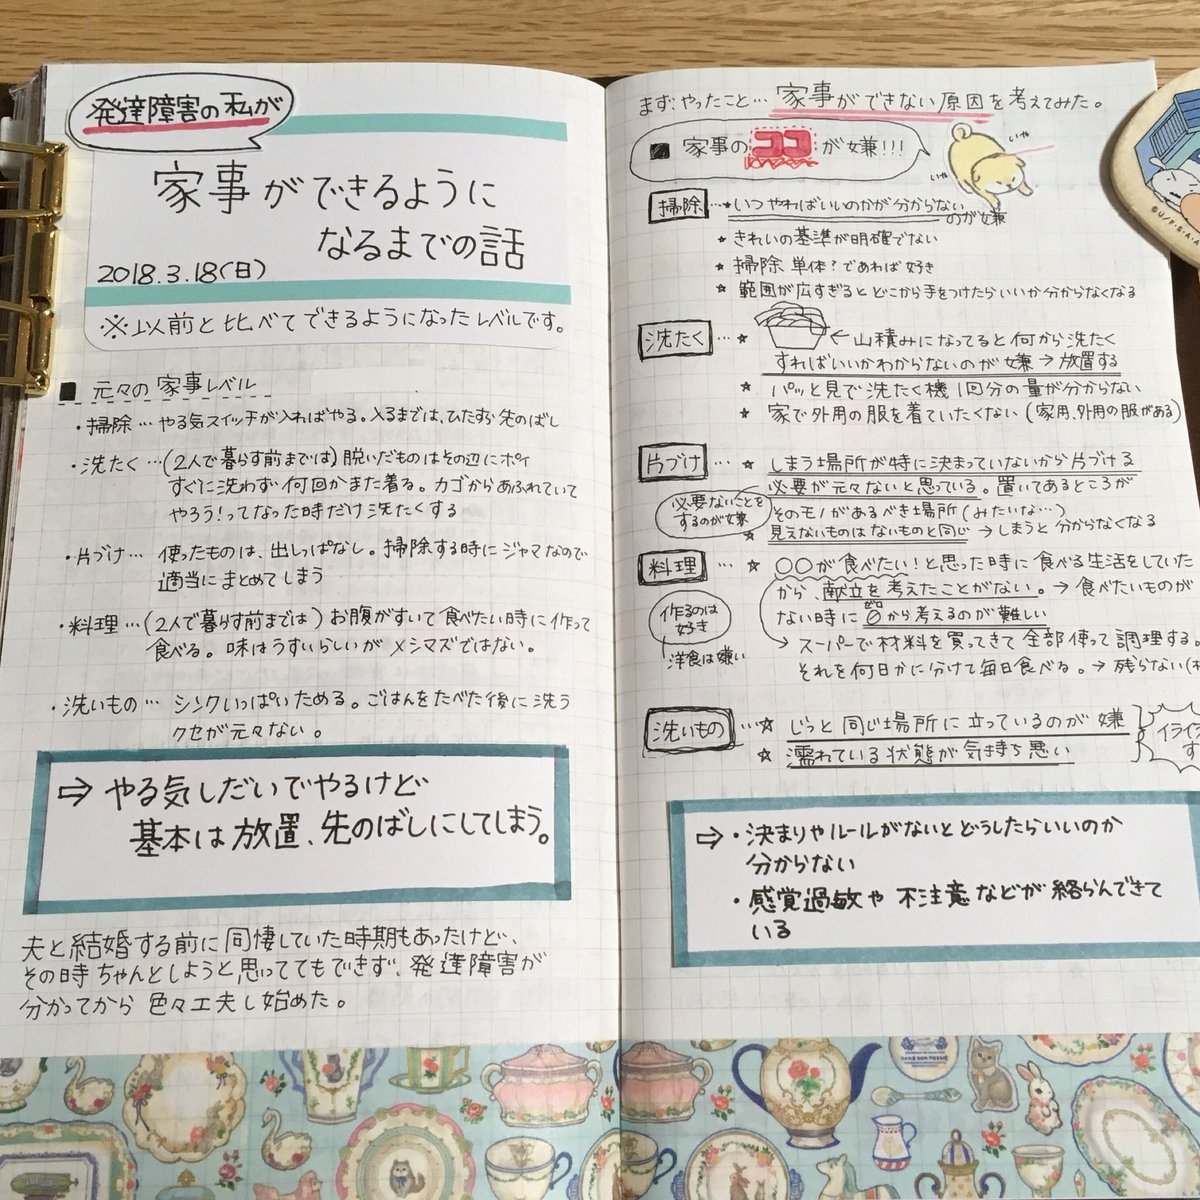 発達障害の私が
家事ができるように
なるまでの話
2018.3.18(日)
※以前と比べてできるようになったレベルです。
■ 元々の家事レベル
・掃除…やる気スイッチが入ればやる。入るまでは、ひたすら先のばし
・洗たく…(2人で暮らす前までは)脱いだものはその辺にポイ
すぐに洗わず何回かまた着る。カゴからあふれていて
やろう!ってなった時だけ洗たくする
・片づけ… 使ったものは、出しっぱなし。掃除する時にジャマなので
適当にまとめてしまう
・料理…(2人で暮らす前までは)お腹がすいて食べたい時に作って
食べる。味はうすいらしいがメシマズではない。
・洗いもの… シンクいっぱいためる。ごはんをたべた後に洗う
クセが元々ない。
⇨ やる気しだいでやるけど
基本は放置、先のばしにしてしまう。
夫と結婚する前に同棲していた時期もあったけど、
その時ちゃんとしようと思っててもできず、発達障害が
分かってから色々工夫し始めた。
まず、やったこと… 家事ができない原因を考えてみた。
■ 家事のココが嫌!!!
いや
いや
掃除…★いつやればいいのかが分からない
のが嫌
★ きれいの基準が明確でない
★ 掃除単体?であれば好き
★ 範囲が広すぎるとどこから手をつけたらいいか分からなくなる
洗たく…★ ←山積みになってると何から洗たく
すればいいかわからないのが嫌→放置する
★ パッと見で洗たく機1回分の量が分からない
★ 家で外用の服を着ていたくない(家用、外用の服がある)
片づけ…★ しまう場所が特に決まっていないから片づける
必要が元々ないと思っている。置いてあるところが
必要ないことをするのが嫌
そのモノがあるべき場所(みたいな…)
★ 見えないものはないものと同じ→しまうと分からなくなる
料理…★ 〇〇が食べたい!と思った時に食べる生活をしていた
から、献立を考えたことがない。→食べたいものが
作るのは好き
ない時に0から考えるのが難しい
ゼロ
洋食は嫌い
→スーパーで材料を買ってきて全部使って調理する。
それを何日かに分けて毎日食べる。→残らない(
洗いもの…☆ じっと同じ場所に立っているのが嫌
☆ 濡れている状態が気持ち悪い
イライ
す
⇨・決まりやルールがないとどうしたらいいのか
分からない
・感覚過敏や不注意などが絡んできて
いる